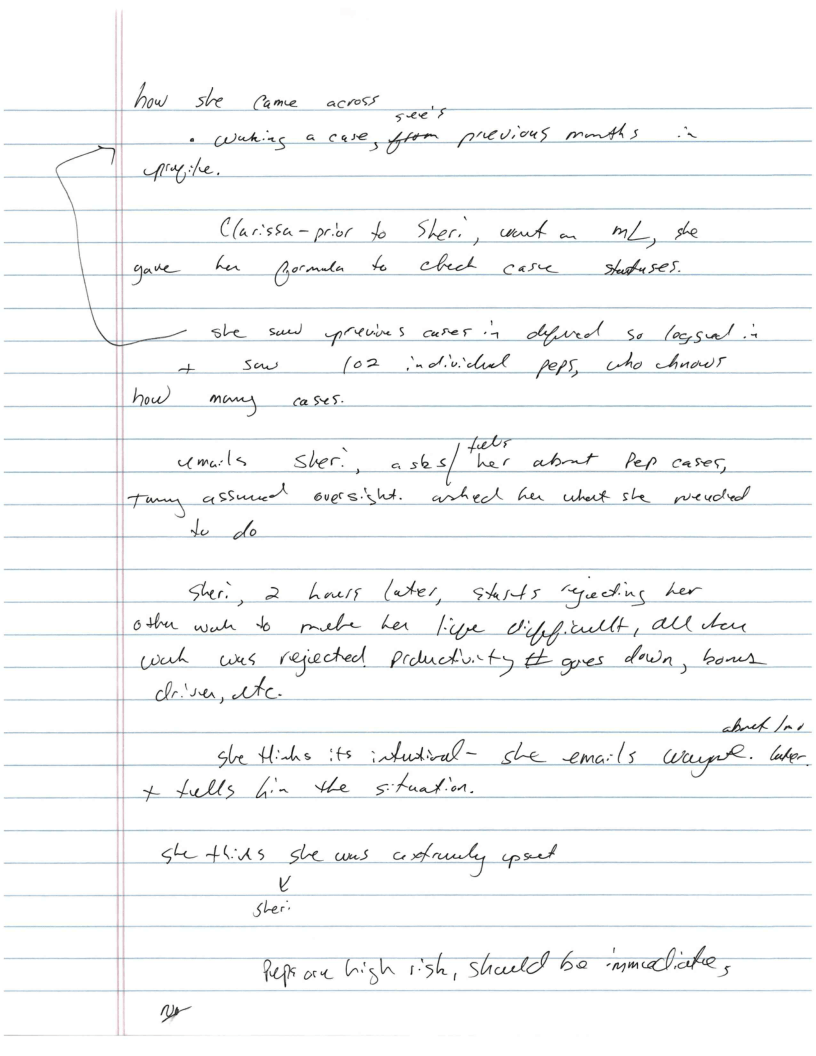 how she came across
see's
• working a case, from previous months in
profile.
Clarissa - prior to Sheri, went on ML, she
gave her formula to check case statuses.
she saw previous cases in deferred so logged in
+ saw 102 individual peps, who knows
how many cases.
tells
emails Sheri, asks/ her about Pep cases,
assumed oversight. asked her what she needed
to do
Sheri, 2 hours later, starts rejecting her
other work to make her life difficult, all her
work was rejected. productivity # goes down, bonus
driven, etc.
about
she thinks its intentional - she emails Wayne. later
+ tells him the situation.
she thinks she was extremely upset
Sheri
Peps are high risk, should be immediate,